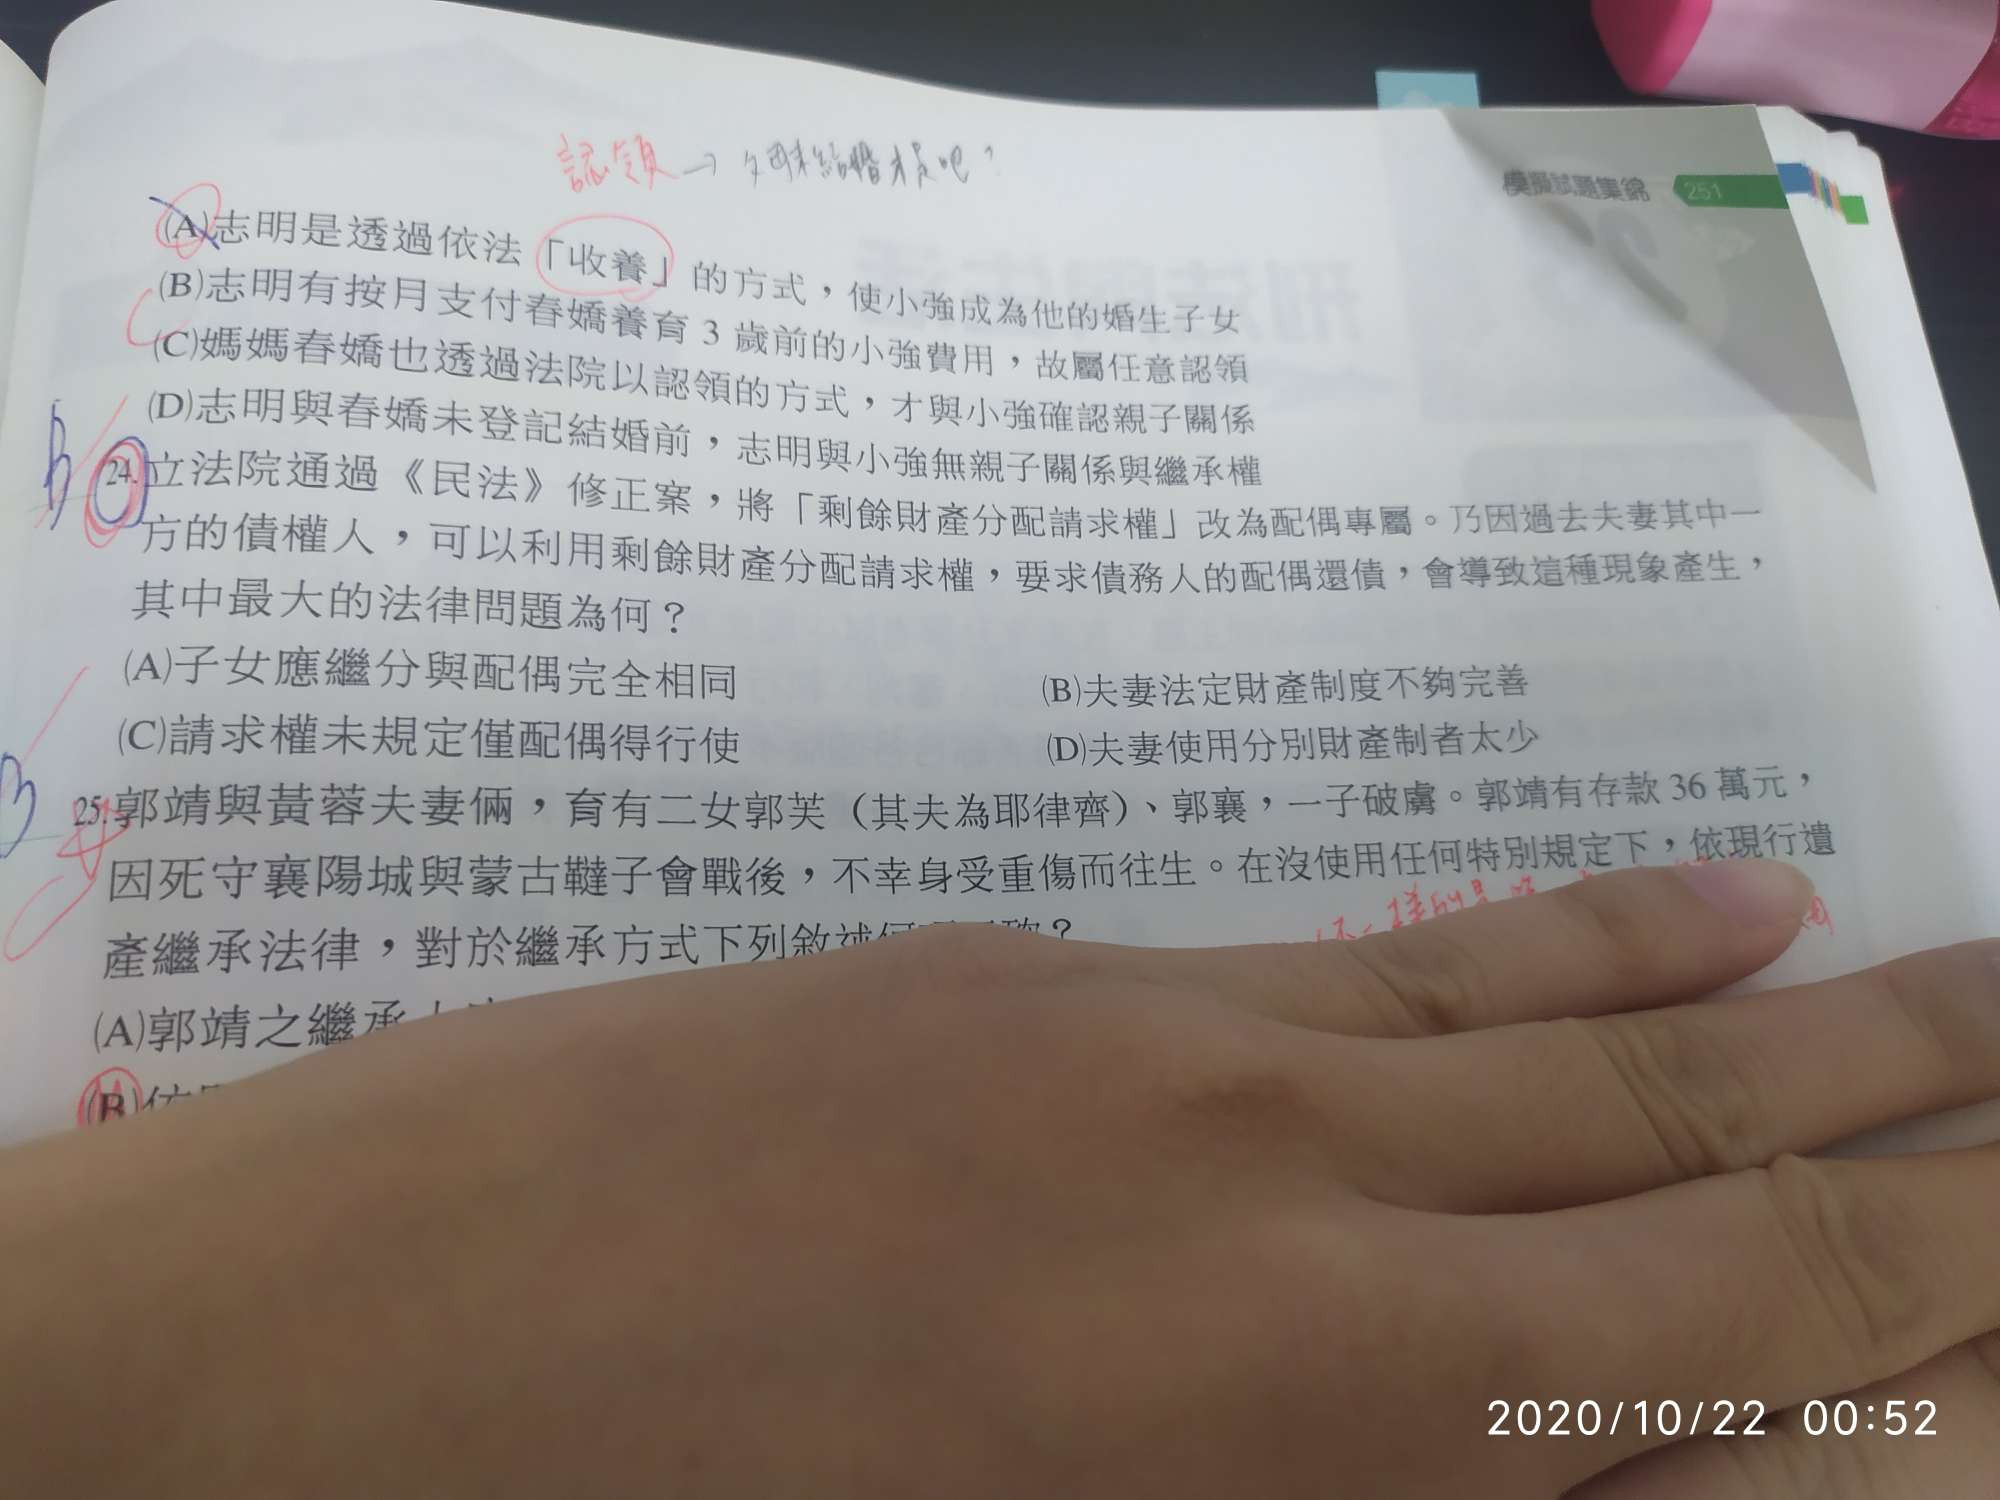 認領→父母未結婚才是吧?
模擬試題集錦 251
(A)志明是透過依法「收養」的方式,使小強成為他的婚生子女
(B)志明有按月支付春嬌養育3歲前的小強費用,故屬任意認領
(C)媽媽春嬌也透過法院以認領的方式,才與小強確認親子關係
(D)志明與春嬌未登記結婚前,志明與小強無親子關係與繼承權
B
24.立法院通過《民法》修正案,將「剩餘財產分配請求權」改為配偶專屬。乃因過去夫妻其中一
方的債權人,可以利用剩餘財產分配請求權,要求債務人的配偶還債,會導致這種現象產生,
其中最大的法律問題為何?
(A)子女應繼分與配偶完全相同 (B)夫妻法定財產制度不夠完善
(C)請求權未規定僅配偶得行使 (D)夫妻使用分別財產制者太少
25.郭靖與黃蓉夫妻倆,育有二女郭芙(其夫為耶律齊)、郭襄,一子破虜。郭靖有存款36萬元,
因死守襄陽城與蒙古韃子會戰後,不幸身受重傷而往生。在沒使用任何特別規定下,依現行遺
產繼承法律,對於繼承方式下列敘述
(A)郭靖之繼承
(B)依
2020/10/22 00:52